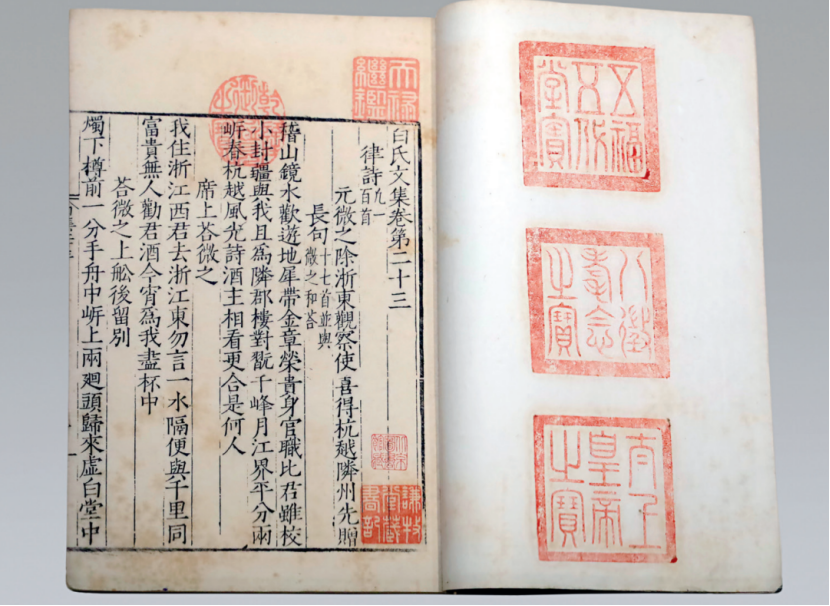 五福五代堂寶
八徵耄念之寶
太上皇帝之寶
天禄繼鑑
乾隆御覽之寶
白氏文集卷第二十三
律詩 凡一百首
元微之除浙東觀察使喜得杭越隣州先贈
長句 十七首並與微之和荅
稽山鏡水歡遊地犀帶金章榮貴身官職比君雖校
小封疆與我且爲隣郡樓對翫千峰月江界平分兩
岍春杭越風光詩酒主相看更合是何人
席上荅微之
我住浙江西君去浙江東勿言一水隔便與千里同
富貴無人勸君酒今宵爲我盡杯中
荅微之上舩後留別
燭下樽前一分手舟中岍上兩廻頭歸來虛白堂中
謙牧堂藏書記